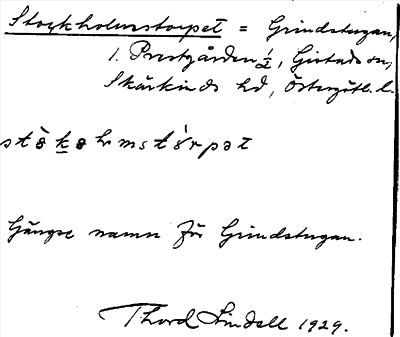 Stockholmstorpet = Grindstugan,
1. Prestgården 1/2, Gistads sn,
Skärkinds hd, Östergötl. l.
Gängse namn för Grindstugan.
Thord Lindell 1929.